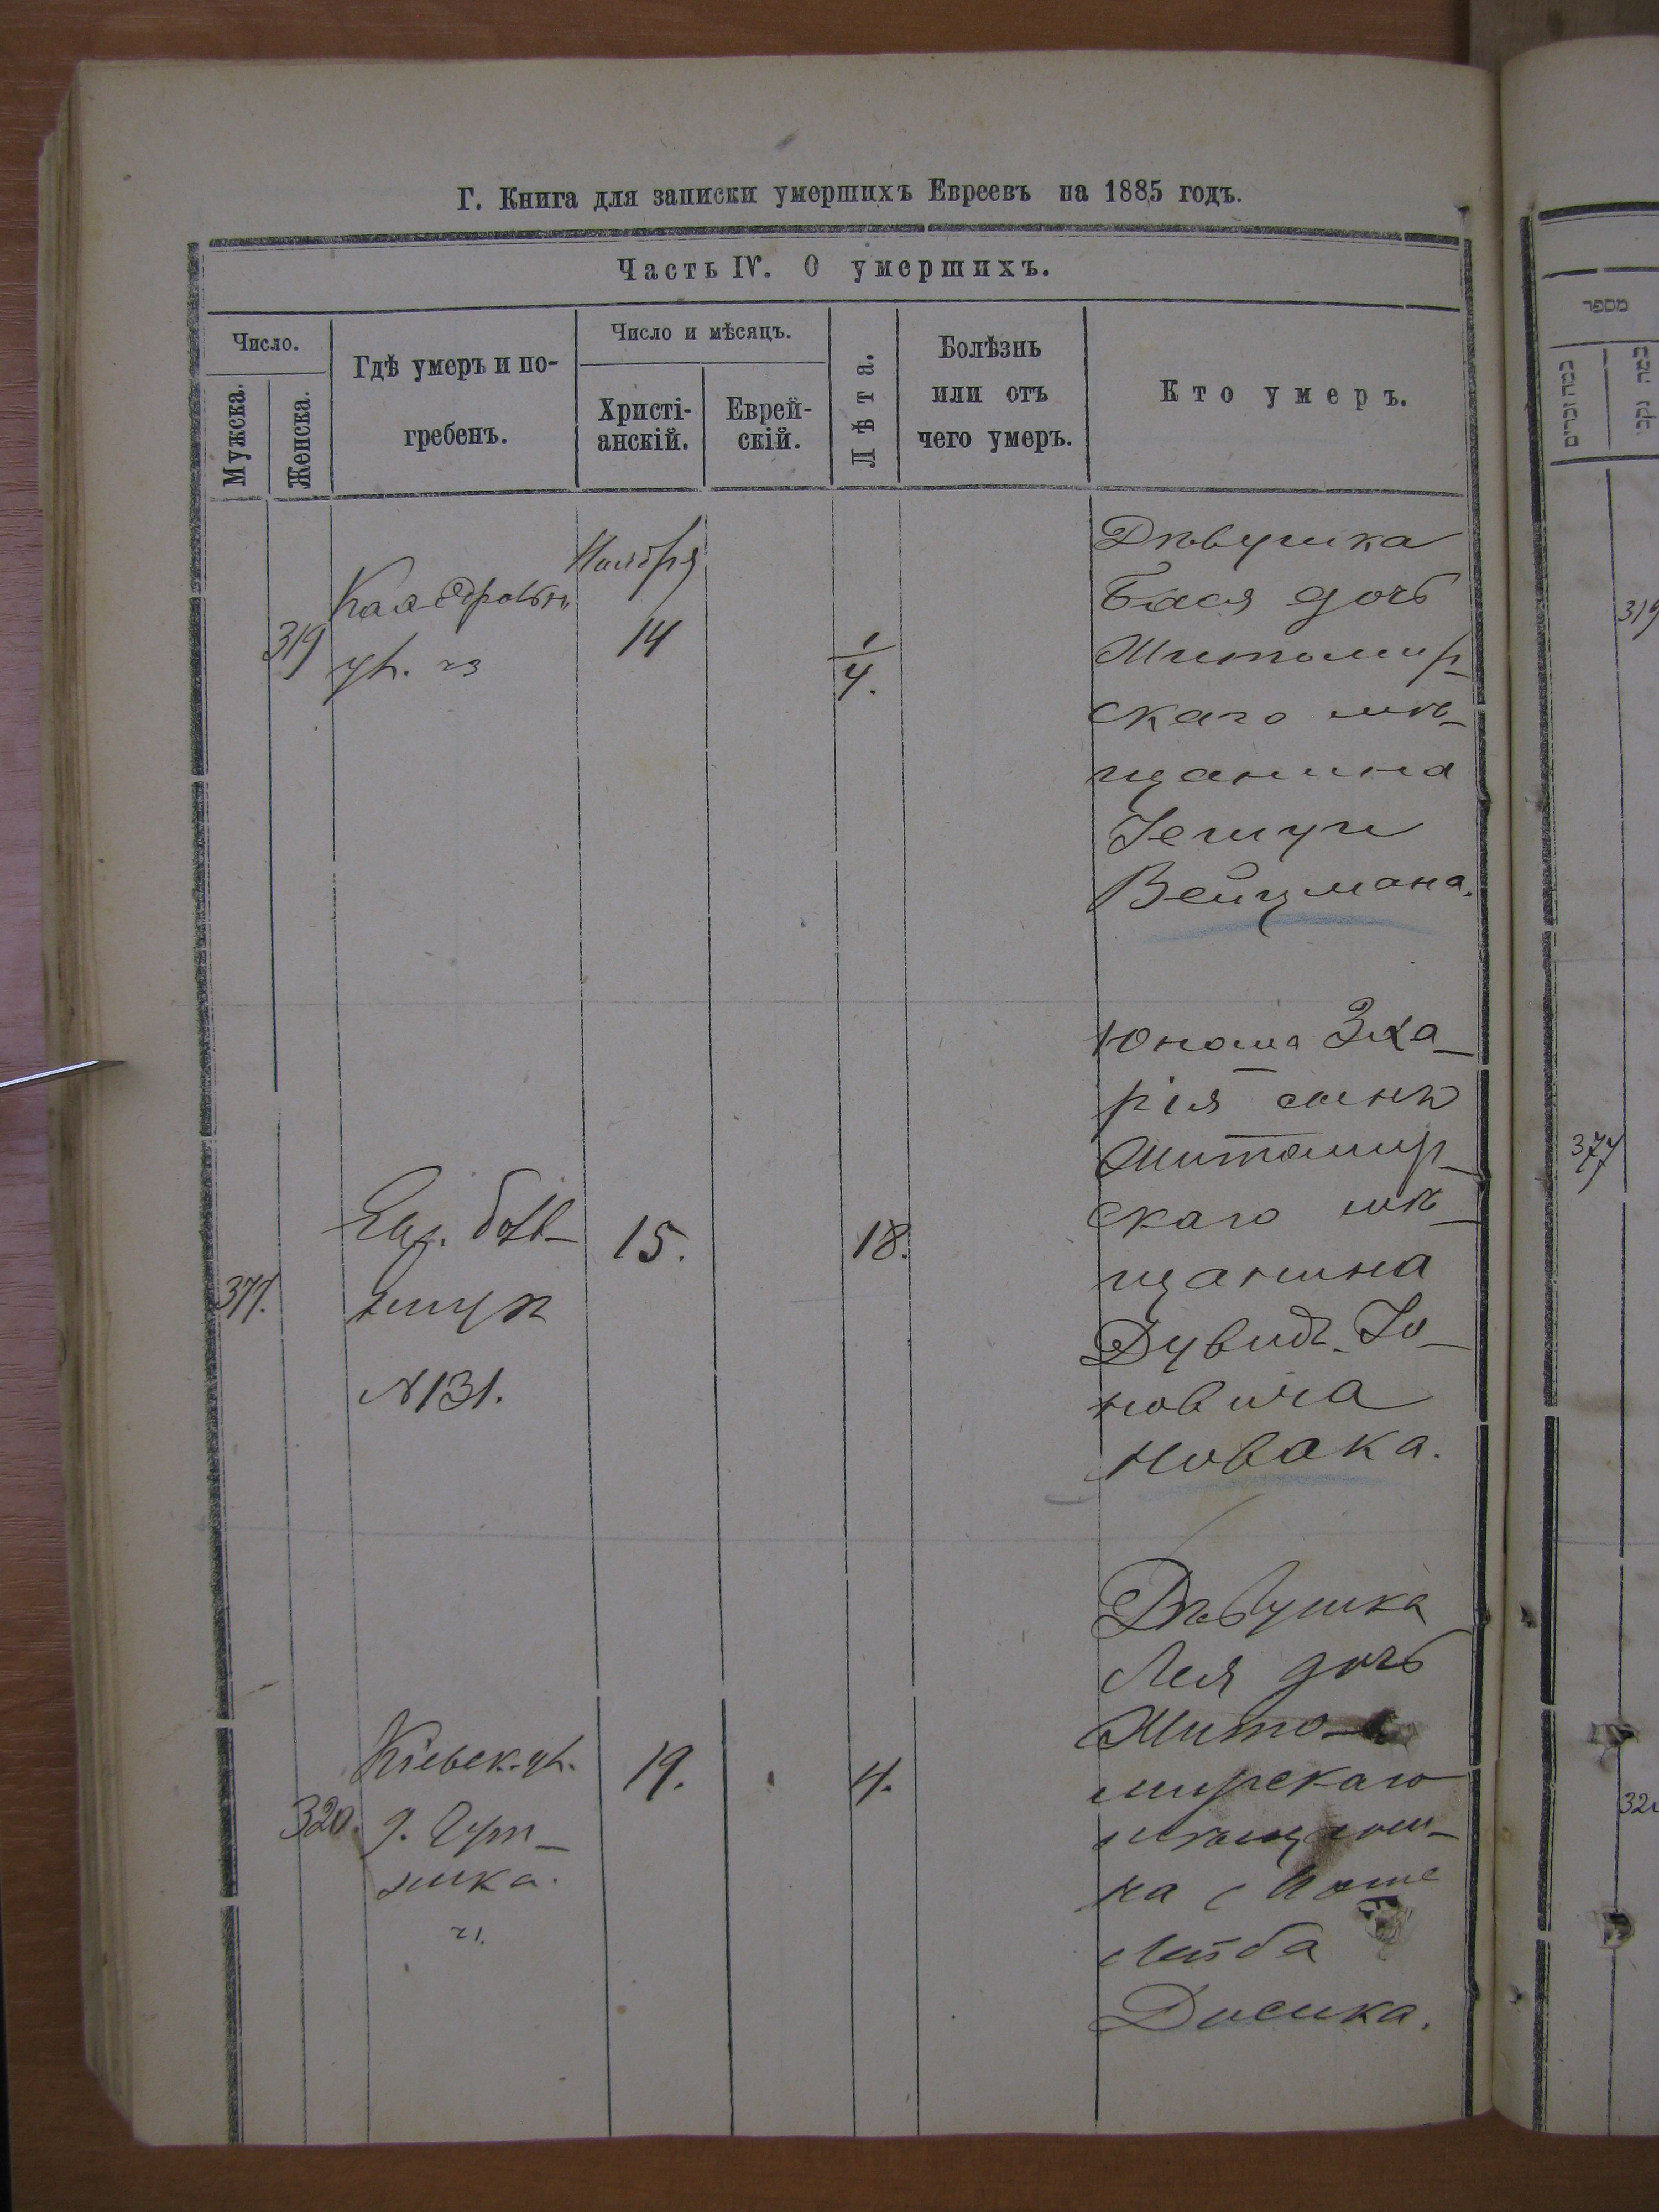 Г. Книга для записки умершихъ Евреевъ на 1885 годъ.
Часть IV. О умершихъ.
Число.
Мужска.
Женска.
Гдѣ умеръ и по-
гребенъ.
Число и мѣсяцъ.
Христі-
анскій.
Еврей-
скій.
Лѣта.
Болѣзнь
или отъ
чего умеръ.
Кто умеръ.
319
ул.
Ноября
14
1/4.
Дѣвушка
Бася дочь
Житомир-
скаго мѣ-
щанина
Вейцмана.
377.
N 131.
15.
18.
Юноша Зха-
рія сынъ
Житомир-
скаго мѣ-
щанина
Дувидъ-Іо-
новича
Новака.
320.
Кіевск. ул.
д.
19.
4.
Дѣвушка
Лея дочь
Жито-
мирскаго
мѣщани-
на Моше
Лейба
Досика.
מספר
כמה זכרים
כמה נקבו
319
377
320